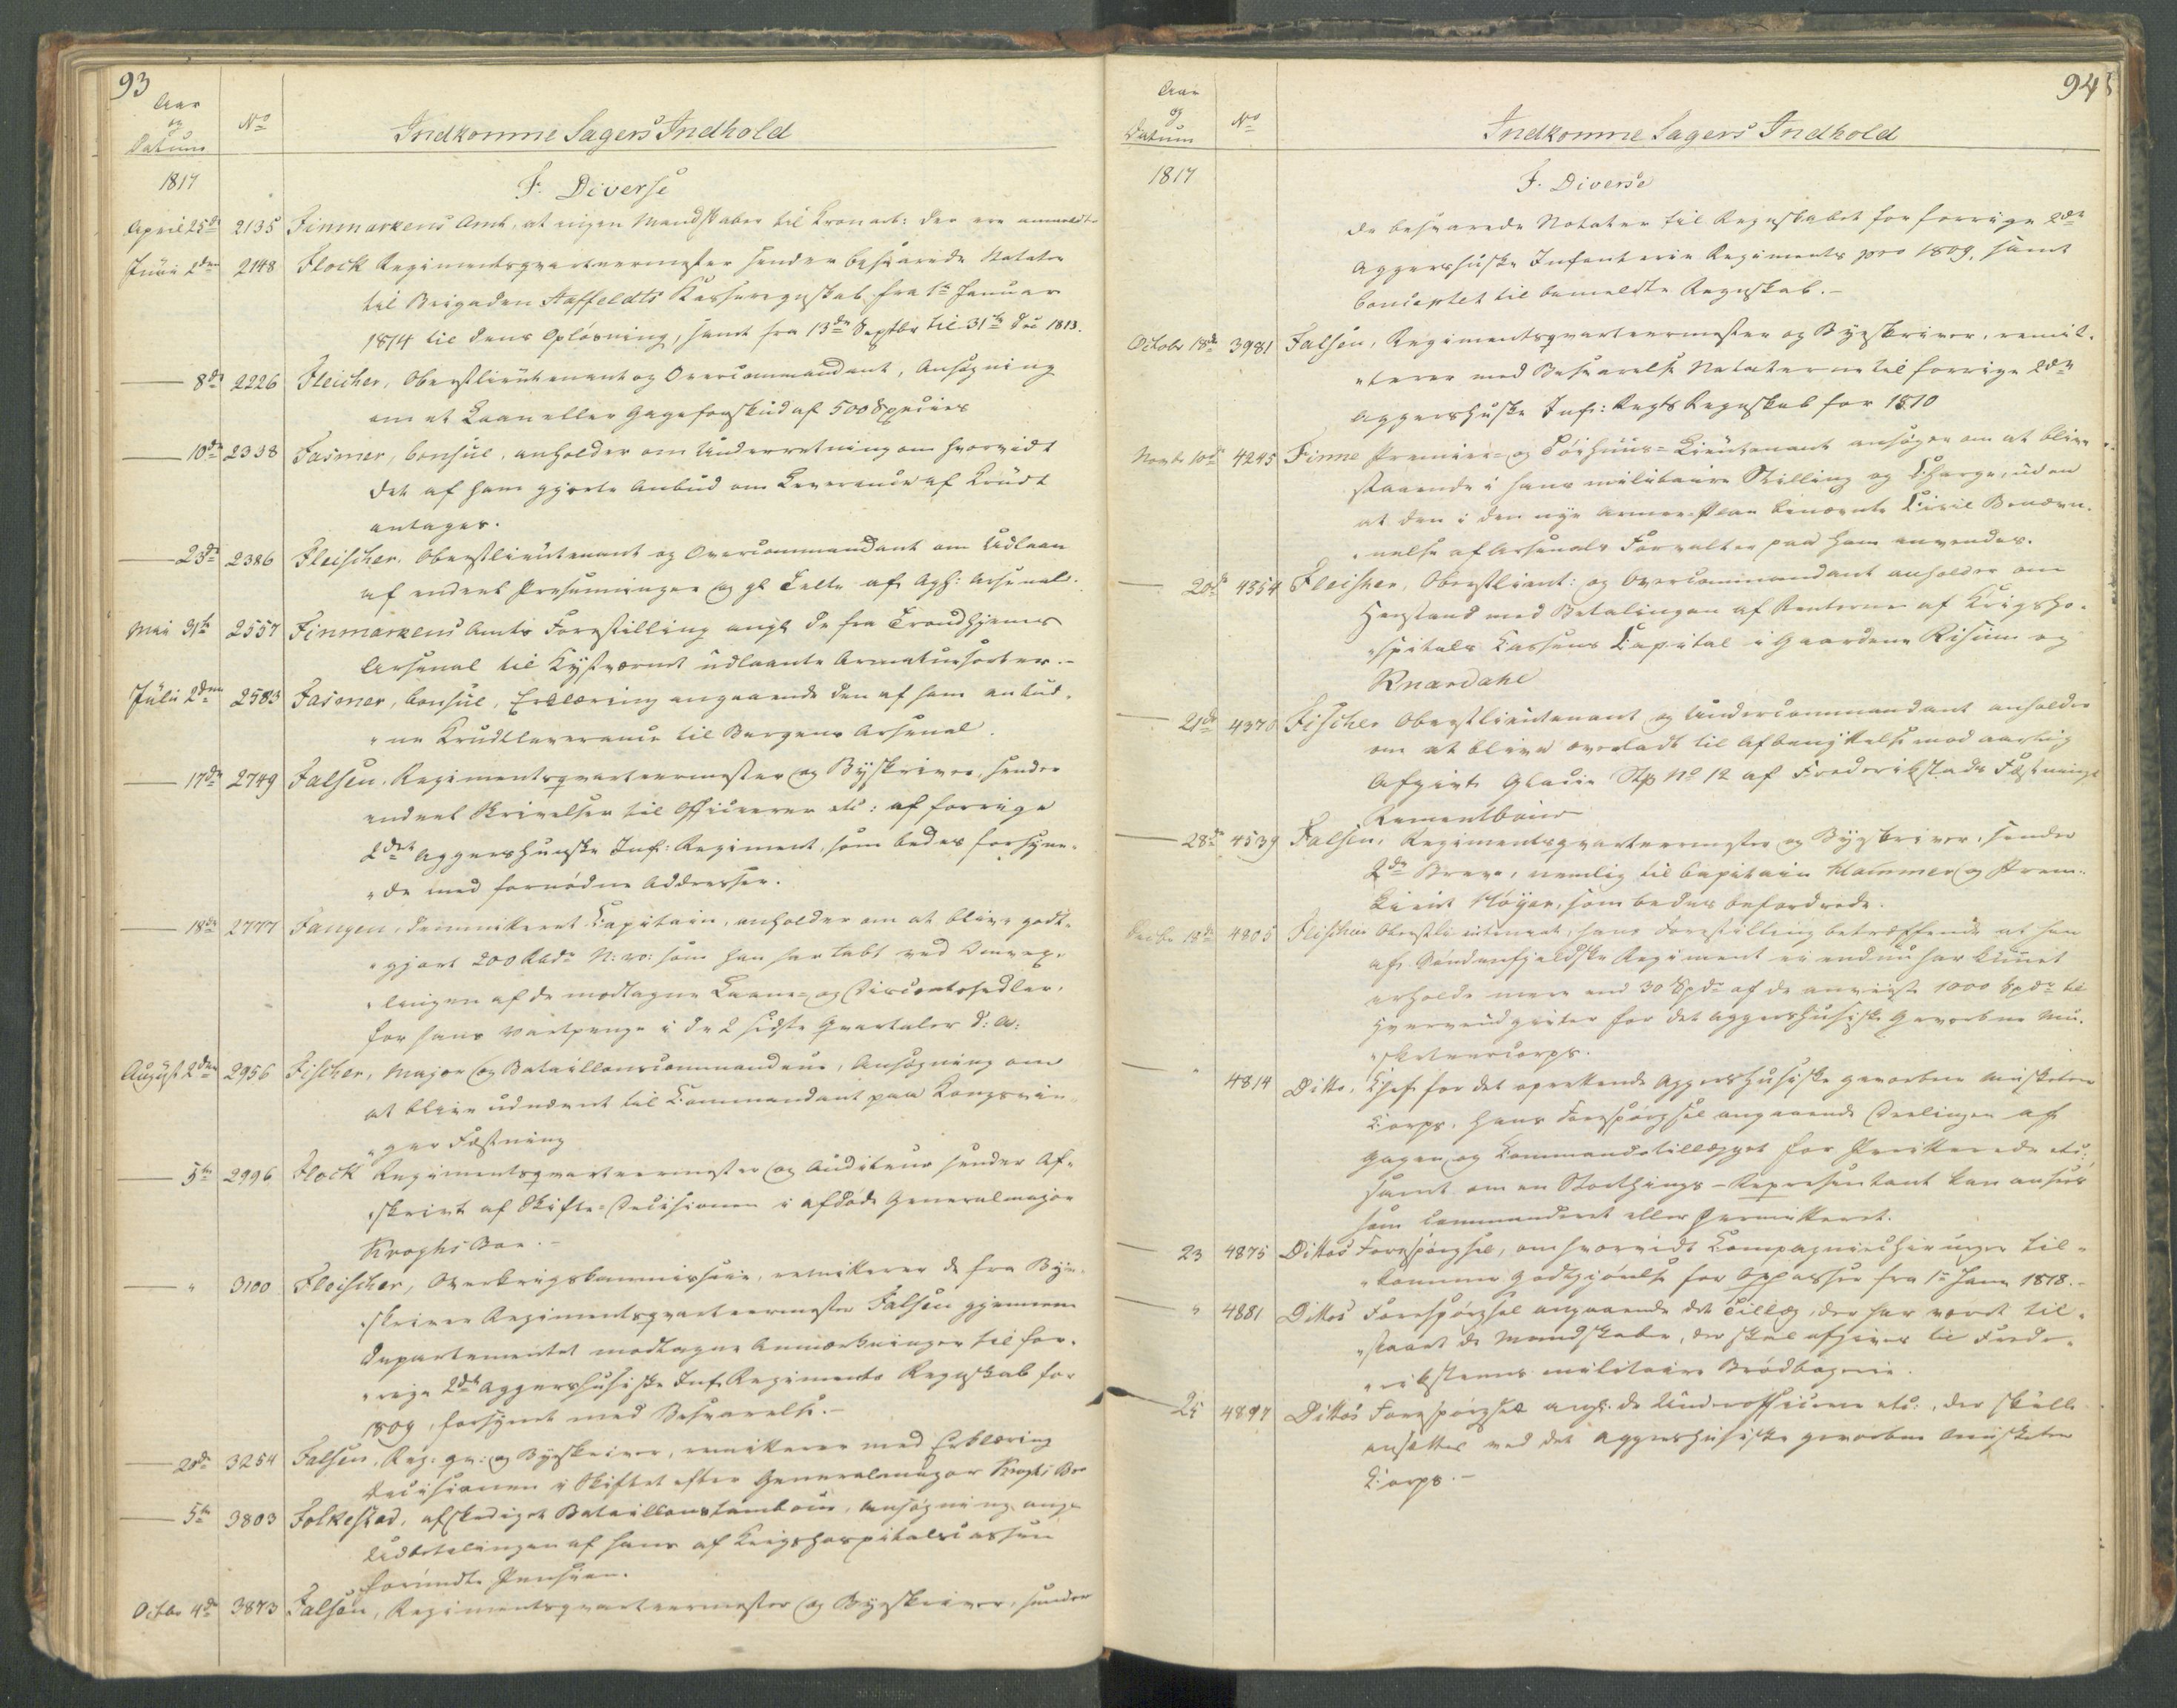 93
Aar
og
Datum
No
Indkomne Sagers Indhold
1817
F. Diverse
April 25de 2135 Finmarkens Amt, at ingen Mandskaber til Kronarb: der ere anmeldte
Juni 2den 2148 Flock Regimentsqvarteermester sender besvarede Notater
til Brigaden Staffeldts Casseregnskab fra 1ste Januar
1814 til dens Opløsning, samt fra 13de Septbr til 31te Dec 1813.
— 8de 2226 Fleicher, Oberstlieutenant og Overcommandant, Ansøgning
om et Laan eller Gageforskud af 500 Species
— 10de 2338 Fasmer, Consul, anholder om Underretning om hvorvidt
det af ham gjorte Anbud om Leverance af Krudt
antages.
— 23de 2386 Fleischer, Oberstlieutenant og Overcommandant om Udlaan
af endeel Presenninger og gl Telte af Agh: Arsenal.
Mai 31te 2557 Finmarkens Amts Forestilling angl de fra Trondhjems
Arsenal til Kystværnet udlaante Armatursorter.-
Juli 2den 2583 Fasmer, Consul, Erklæring angaaende den af ham anbud-
ne Krudtleverance til Bergens Arsenal.
— 17de 2749 Falsen, Regimentsqvarteermester og Byskriver, sender
endeel Skrivelser til Officierer etc: af forrige
2det Aggershuusske Inf: Regiment, som bedes forsyne-
de med fornødne Addresser.
— 18de 2777 Fangen, dimitteret Capitain, anholder om at blive godt-
gjort 200 Rbdr N: v: som han har tabt ved Omvex-
lingen af de modtagne Laane- og Discontosedler,
for hans Vartpenge i de 2 sidste Qvartaler d: A:
August 2den 2956 Fischer, Major og Bataillonscommandeur, Ansøgning om
at blive udnævnt til Commandant paa Kongsvin-
ger Fæstning
— 5te 2996 Flock Regimentsqvarteermester og Auditeur sender Af-
skrivt af Skifte-Decisionen i afdøde Generalmajor
Kroghs Boe.-
— " 3100 Fleischer, Overkrigskommissair, remitterer de fra Bye-
skriver Regimentsqvarteermester Falsen gjennem
Departementet modtagne Anmærkninger til for-
rige 2det Aggershusiske Inf. Regiments Regnskab for
1809, forsynet med Besvarelse.-
— 20de 3254 Falsen, Reg: qv: og Byeskriver, remitterer med Erklæring
Decisionen i Skiftet efter Generalmajor Kroghs Bo
— 5te 3803 Folkestad, afskediget Bataillonstambour, Ansøgning ang
Udbetalingen af hans af Krigshospitalscassen
forundte Pension.
Octbr 4de 3873 Falsen, Regimentsqvarteermester og Byeskriver, sender
94
Aar
og
Datum
No
Indkomne Sagers Indhold
1817
F. Diverse
de besvarede Notater til Regnskabet for forrige 2det
Aggershuske Infanterie Regiments pro 1809, samt
Conceptet til bemeldte Regnskab.-
Octobr 18de 3981 Falsen, Regimentsqvarteermester og Byeskriver, remit-
terer med Besvarelse Notaterne til forrige 2det
Aggershuske Inf: Regts Regnskab for 1810
Novbr 10de 4245 Finne Premier- og Tøihuus-Lieutenant ansøger om at blive
staaende i hans militaire Stilling og Charge, uden
at den i den nye Armee-Plan benævnte Civil Benævn-
nelse af Arsenals Forvalter paa ham anvendes.
— 20de 4354 Fleischer, Oberstlieut: og Overcommandant anholder om
Henstand med Betalingen af Renterne af Krigsho-
spitals Cassens Capital i Gaardene Risum og
Knardahl
— 21de 4370 Fischer Oberstlieutenant og Undercommandant anholder
om at blive overladt til Afbenyttelse mod aarlig
Afgivt Glacie Stk No 12 af Frederikstads Fæstnings
— 28de 4539 Falsen, Regimentsqvarteermester og Byeskriver, sender
2de Breve, nemlig til Capitain Hammer og Prem:
Lieut Høyer, som bedes befordrede.
Decbr 18de 4805 Flischer Oberstlieutenant, hans Forestilling betræffende at han
af Søndenfjeldske Regiment ei endnu har kunnet
erholde mere end 30 Spdr af de anviiste 1000 Spdr til
Hververudgivter for det Aggershusiske Gevorbne Mu-
sketeercorps.
— " 4814 Ditto, Chef for det oprettende Aggershusiske gevorbne Musketeer
Corps, hans Forespørgsel angaaende Deelingen af
Gagen, og Commandotillægget for Permitterede etc.
samt om en Storthings-Repræsentant kan ansees
som commanderet eller Permitteret.
— 23 4875 Dittos Forespørgsel, om hvorvidt Compagniechirurger til-
komme Godtgjørelse for Oppasser fra 1te Janr 1818.-
— " 4881 Dittos Forespørgsel angaaende det Tillæg, der har været til-
staaet de Mandskaber, der skal afgives til Frede-
riksteens militaire Brødbagerie.
— 25 4897 Dittos Forespørgsel angl: de Underofficerer etc., der skulle
ansættes ved det Aggershusiske gevorbne Musketeer
Corps.-